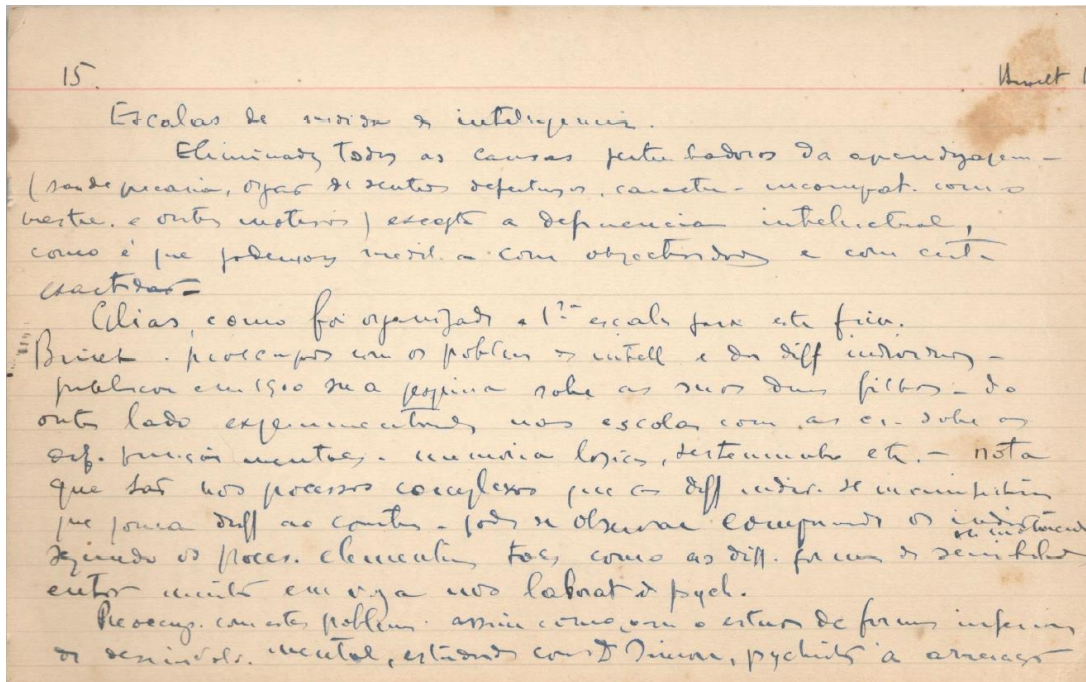 15.
Escalas de medida da inteligencia.
Eliminadas todas as causas perturbadoras da aprendizagem –
(saude precaria, orgãos de sentidos defeituosos, caracter – incompat. com o
mestre. e outros motivos) excepto a deficiencia intelectual,
como é que podemos medil-a com objectividade e com certa
exactidão –
Alias, como foi organizada a 1ª escala para este fim.
Binet – preocupado com os problem da intell e das diff individuaes –
publicou em 1900 sua pesquisa sobre as suas duas filhas – do
outro lado experimentando nas escolas com as cr. sobre as
dif. funcções mentaes – memoria logica, testemunho etc. – nota
que são nos processos complexos que as diff indiv. se manifestam
que pouca diff ao contr. – pode se observar comparando os individuos
segundo os proces. elementares taes como as diff. formas de sensibilidade
então muito em voga nos laborat de psych.
Preoccup. com estes problem. assim como com o estudo de formas inferiores
de desenvolv. mental, estudando com Dr Simon, psychiatra